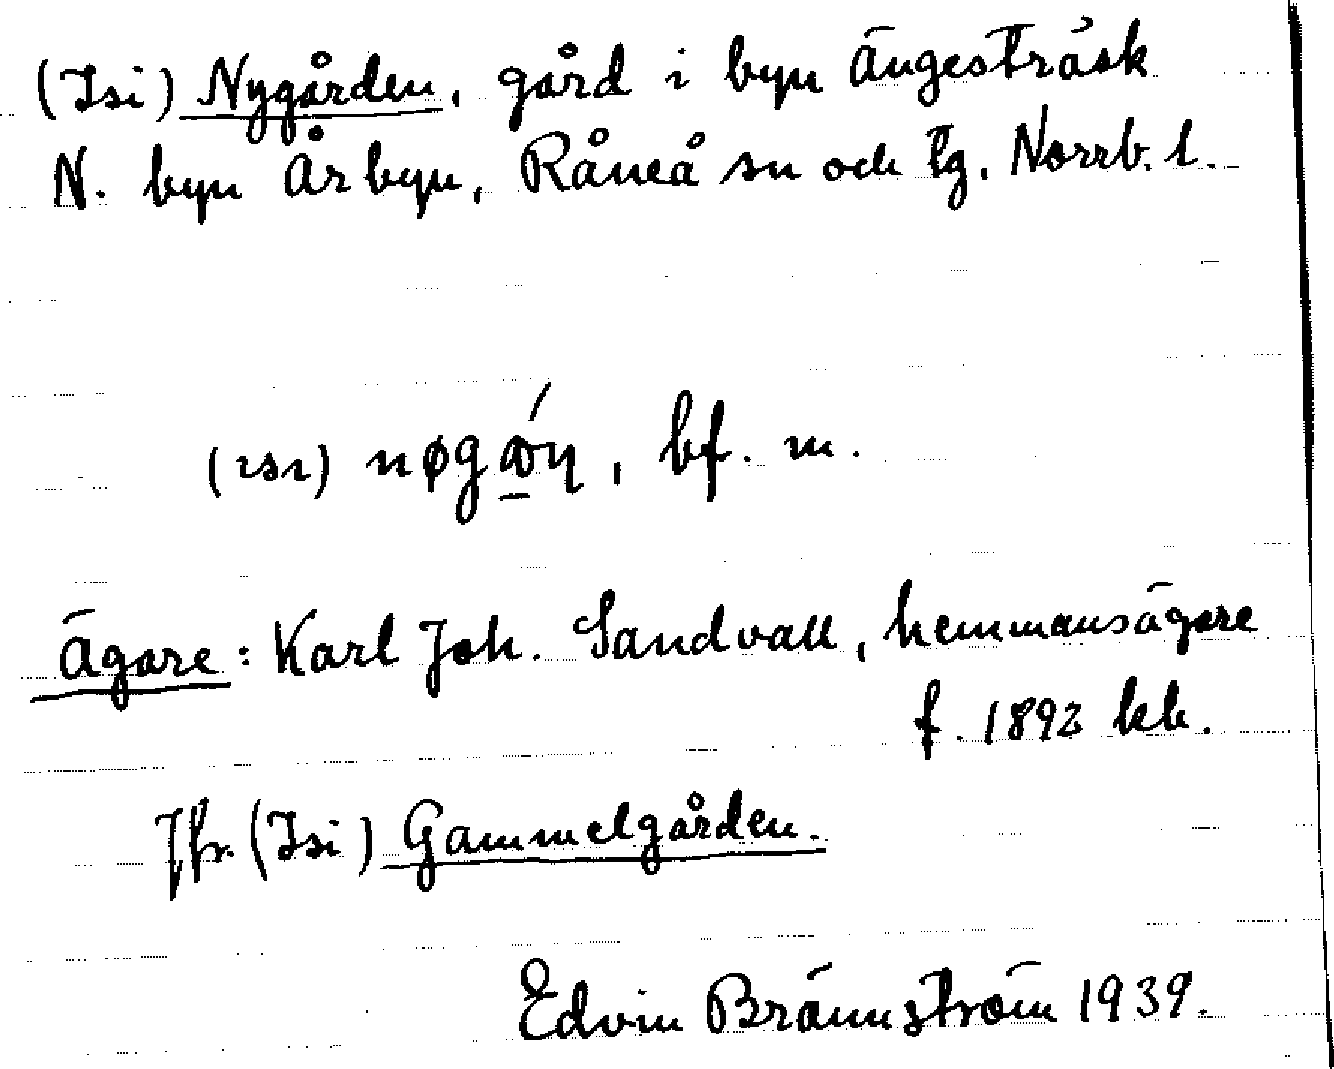 (Isi) Nygården, gård i byn Ängesträsk
N. byn Årbyn, Råneå sn och tg. Norrb. l.
(ısı) nøgǻn, bf. m.
Ägare: Karl Joh. Sandvall, hemmansägare
f. 1892 kb.
Jfr. (Isi) Gammelgården.
Edvin Brännström 1939.